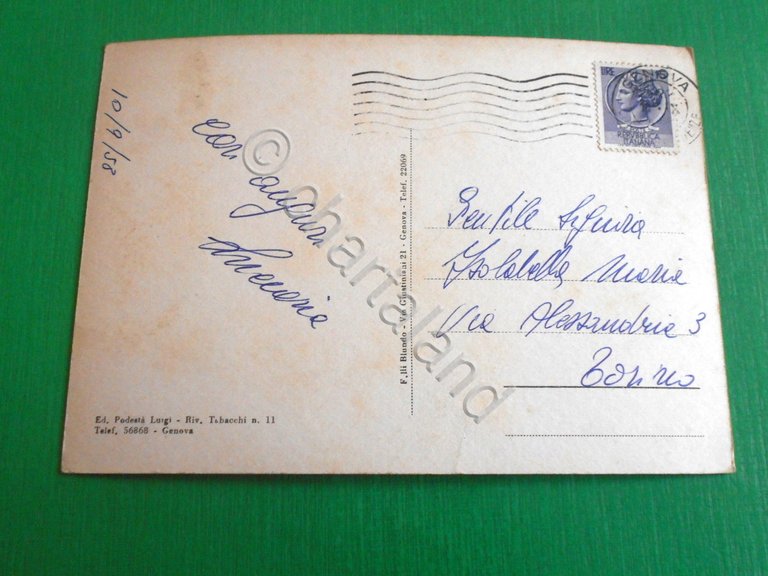 10/9/58
con auguri
Annamaria
Ed. Podestà Luigi - Riv. Tabacchi n. 11
Telef. 56868 - Genova
F.lli Blundo - Via Giustiniani 21 - Genova - Telef. 22069
LIRE
REPUBBLICA
ITALIANA
GENOVA
Gentile Signora
Isolabella Maria
Via Alessandria 3
Torino
© chartaland